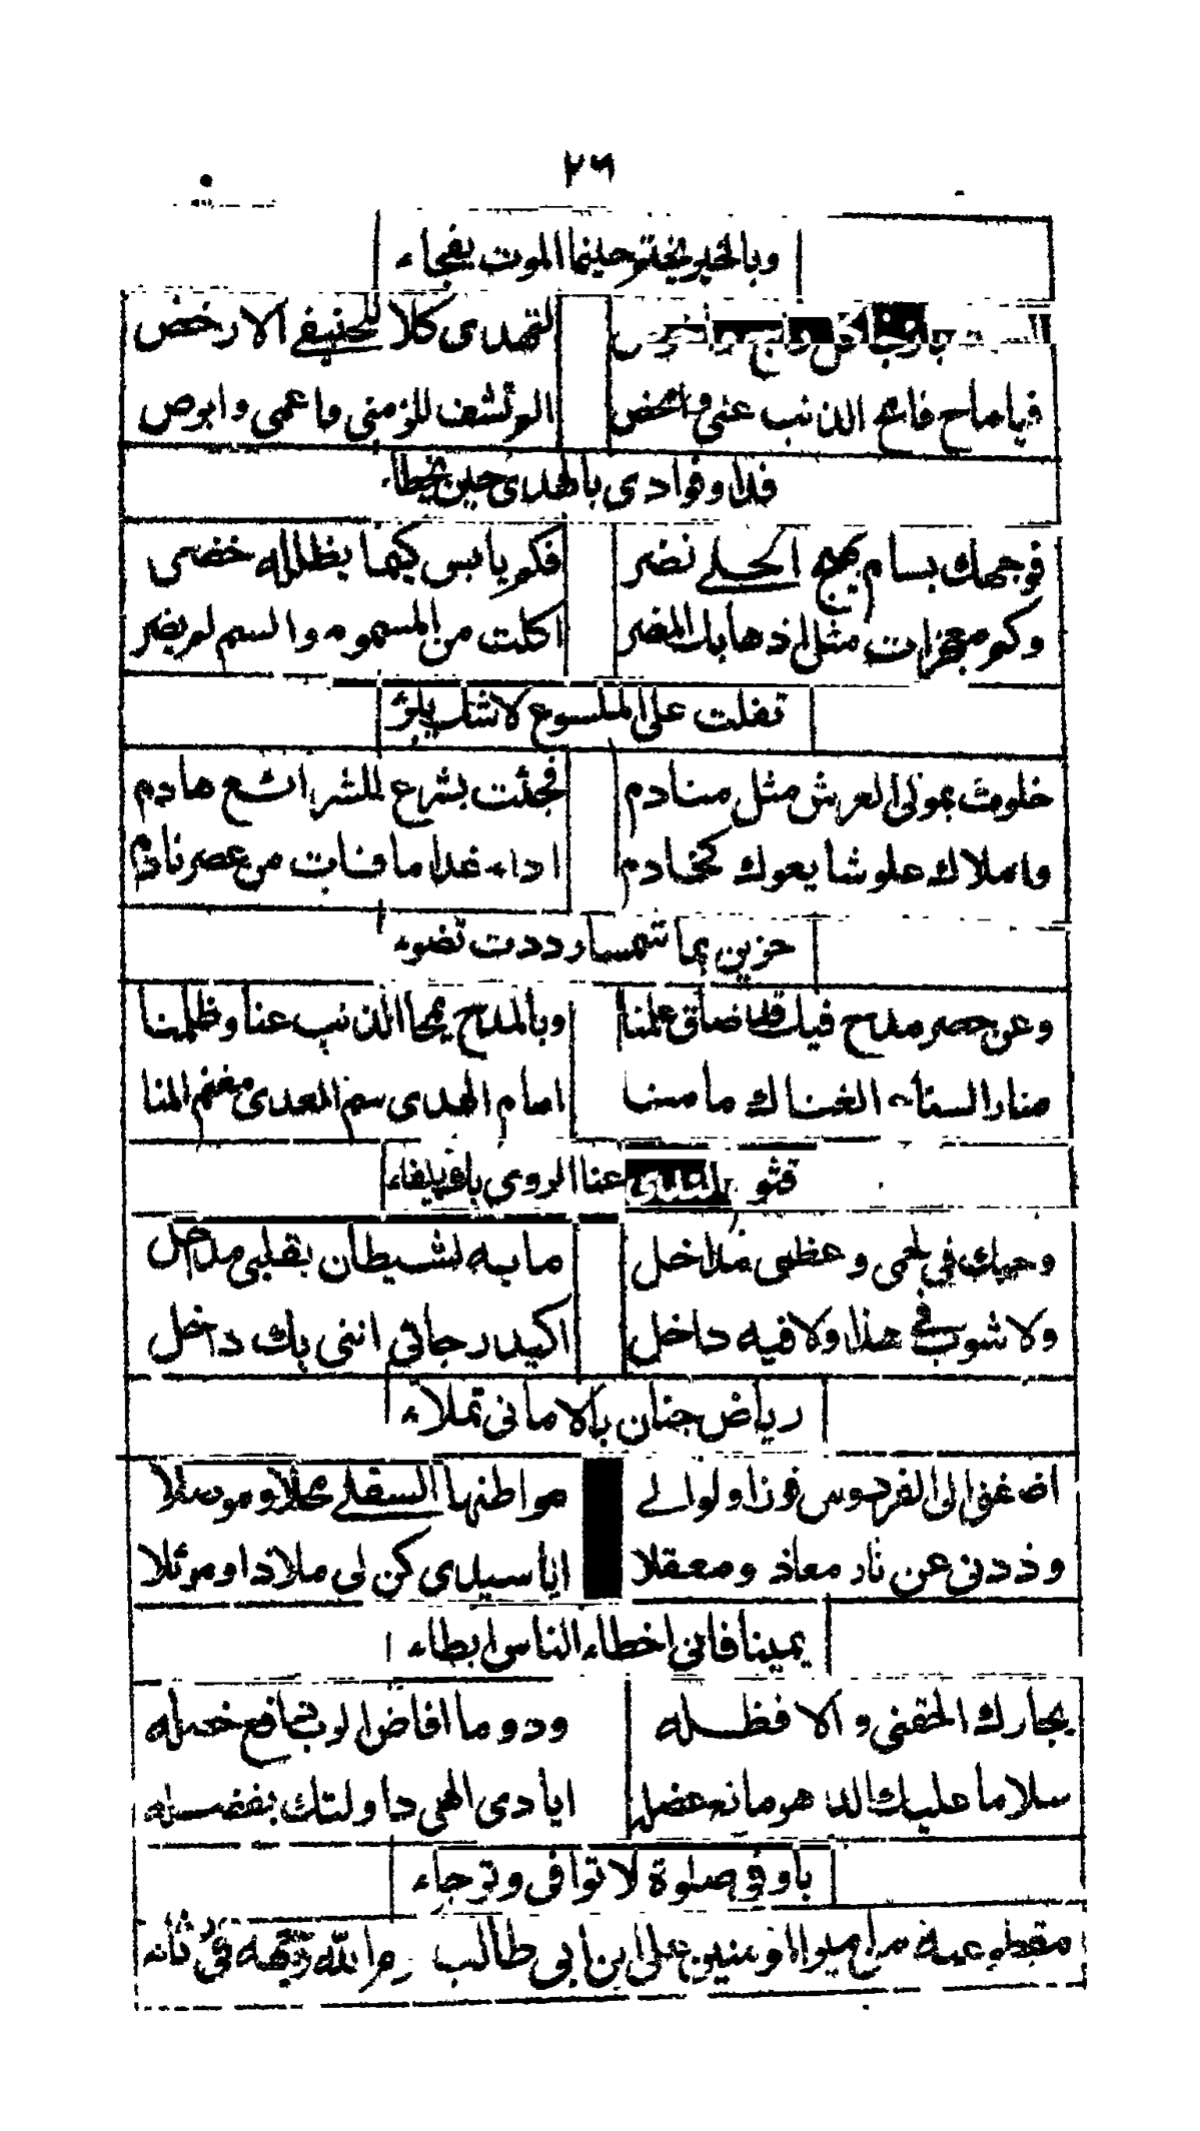 ٢٦
وبالخير يختم حينما الموت يفجاء
التهدى كلا للحنيفي الارخض
فياماح فامح الذنب عنى وامحض الم تشف للزمنى واعمى وابرص
فدا وفوادى بالهدى حين يخطاء
فوجهك بسام بهيج الحلى نضر فكم يابس كيما يظلله خضى
وكم معجزات مثل اذ هابك المضر اكلت من المسموم والسم لم يضر
تفلت على الملسوع لاشك يبرء
خلوت بمولى العرش مثل منادم فجئت بشرع للشرائع هادم
واملاك علو شايعوك كخادم اداء غدا مافات من عصر نادم
حزين بما شمسا رددت تضوء
وعن حصر مدح فيك قد ضاق علمنا وبالمدح يمحا الذنب عنا وظلمنا
منار السناء الغناك مامنا امام الهدى سم المعدى مغنم المنا
عنا الروى
وحبك فى لحمى وعظمى مداخل مابه لشيطان بقلبى مداخل
ولا شوب فى هذا ولا فيه داخل اكيد رجائى اننى بك داخل
رياض جنان بالامانى تملاء
اضغنى الى الفردوس فوزا ولوالى مواطنها السفلى محلا وموصلا
وذدنى عن نار معاذ ومعقلا ايا سيدى كن لى ملاذا وموئلا
يمينا فانى اخطاء الناس ابطاء
بجارك الحقنى والا فظله ودوما افاض الوب
سلاما عليك الدهر مانه عضل ايادى الهى داولتك بفضله
باوفى صلوة لا توافى وترجاء
على ابن ابى طالب